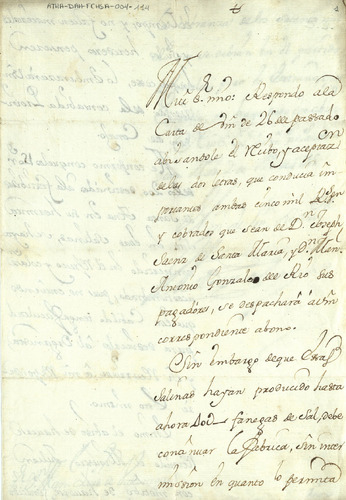 ATHA-DAH-FCHSA-004-114
Mui S.r mio: Respondo a la
Carta de Vm de 26 de passado
avisandole el recibo, y aceptaz.on
de las dos letras, que conducia im
portantes ambas cinco mil R.s de
y cobrados que sean de D.n Joseph
Saenz de Santa Maria, y D.n Man.l
Antonio Gonzalo de el Rio sus
pagadores, se despachará a Vm
correspondiente abono.
Sin embargo de que essas
Salinas hayan producido hasta
ahora 400 fanegas de sal, debe
continuar la fabrica, sin inter
mission en quanto lo permita